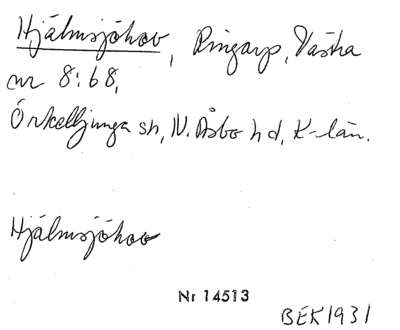 Hjälmsjöhov, Ringarp, Västra
nr 8:68,
Örkelljunga sn, N. Åsbo hd, K-län.
Hjälmsjöhov
Nr 14513
BEK1931